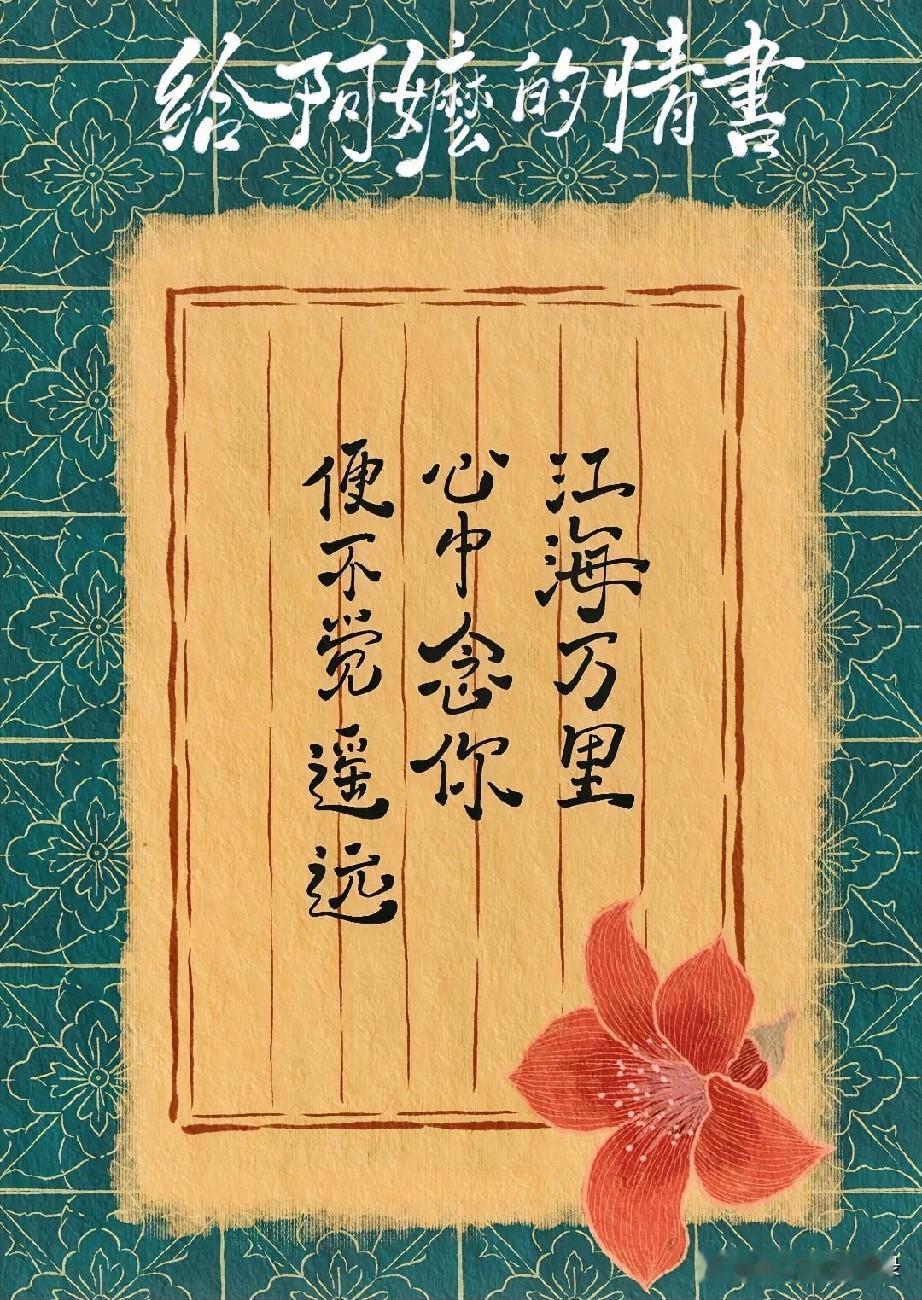 给阿嬷的情書
江海万里
心中念你
便不觉遥远